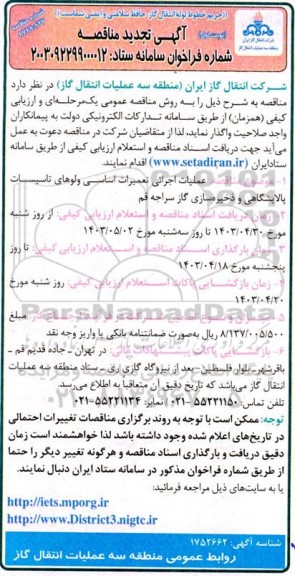 ((حریم خطوط لوله انتقال گاز، حافظ سلامتی و ایمنی شماست))
آگهی تجدید مناقصه
شماره فراخوان سامانه ستاد: ۲۰۰۳۰۹۲۲۹۹۰۰۰۰۱۲
شرکت انتقال گاز ایران (منطقه سه عملیات انتقال گاز) در نظر دارد
مناقصه به شرح ذیل را به روش مناقصه عمومی یک‌مرحله‌ای و ارزیابی
کیفی (همزمان) از طریق سامانه تدارکات الکترونیکی دولت به پیمانکاران
واجد صلاحیت واگذار نماید، لذا از متقاضیان شرکت در مناقصه دعوت به عمل
می‌آید جهت دریافت اسناد مناقصه و استعلام ارزیابی کیفی از طریق سامانه
ستادایران (www.setadiran.ir) اقدام نمایند.
۱- موضوع مناقصه: عملیات اجرائی تعمیرات اساسی ولوهای تاسیسات
پالایشگاهی و ذخیره‌سازی گاز سراجه قم
۲- زمان دریافت اسناد مناقصه و استعلام ارزیابی کیفی: از روز شنبه
مورخ ۱۴۰۳/۰۴/۳۰ تا روز سه‌شنبه مورخ ۱۴۰۳/۰۵/۰۲
۳- زمان بارگذاری اسناد مناقصه و استعلام ارزیابی کیفی: تا روز
پنجشنبه مورخ ۱۴۰۳/۰۴/۱۸
۴- زمان بازگشایی پاکات استعلام ارزیابی کیفی: روز شنبه مورخ
۱۴۰۳/۰۴/۲۰
مبلغ
۸/۱۳۷/۰۰۵/۵۰۰ ریال به‌صورت ضمانتنامه بانکی یا واریز وجه نقد
۶- بازگشایی پاکات پیشنهادات مالی: در تهران - جاده قدیم قم -
باقرشهر- بلوار فلسطین- بعد از نیروگاه گازی ری - ستاد منطقه سه عملیات
انتقال گاز می‌باشد که تاریخ دقیق آن متعاقبا به اطلاع می‌رسد.
تلفن تماس: ۵۵۲۲۱۱۵۰-۰۲۱ نمابر: ۵۵۲۲۱۱۳۴-۰۲۱
توجه: ممکن است با توجه به روند برگزاری مناقصات تغییرات احتمالی
در تاریخ‌های اعلام شده وجود داشته باشد لذا خواهشمند است زمان
دقیق دریافت و بارگذاری اسناد مناقصه و هرگونه تغییر دیگر را حتما
از طریق شماره فراخوان مذکور در سامانه ستاد ایران دنبال نمایند.
یا به سایت‌های ذیل مراجعه فرمائید:
http://iets.mporg.ir
http://www.District3.nigtc.ir
شناسه آگهی: ۱۷۵۲۶۶۲
روابط عمومی منطقه سه عملیات انتقال گاز